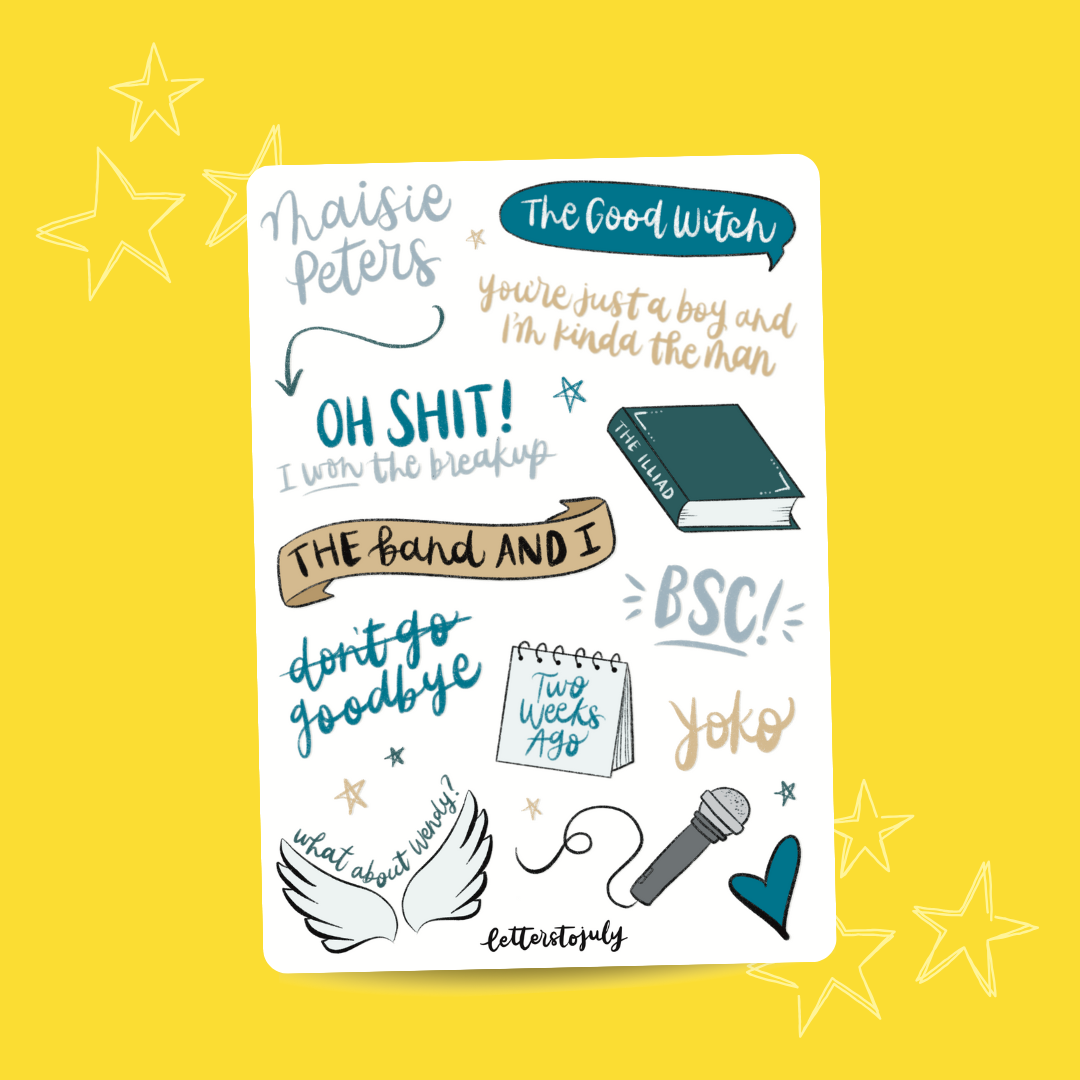 Maisie
Peters
The Good Witch
you're just a boy and
I'm kinda the man
OH SHIT!
I won the breakup
THE ILLIAD
THE band AND I
BSC!
don't go
goodbye
Two
Weeks
Ago
yoko
what about wendy?
letterstojuly